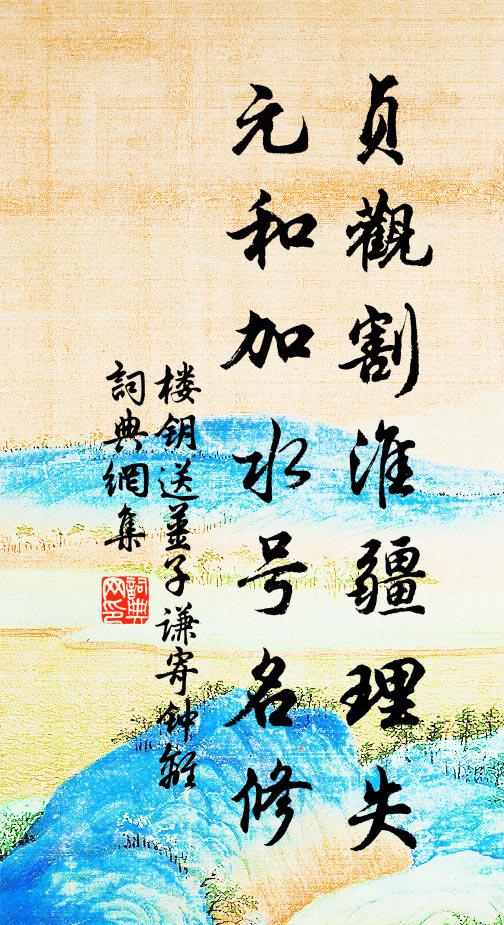 贞觀割淮疆理失
元和加水号名修
楼钥送姜子谦寄钟離
詞典網集
詞典網印